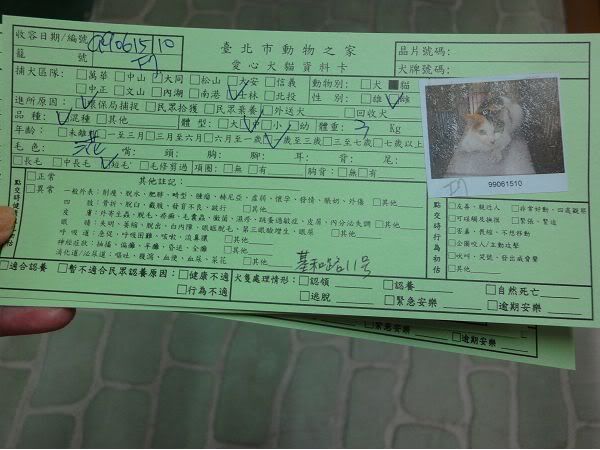 收容日期/編號 99061510
臺北市動物之家
愛心犬貓資料卡
晶片號碼:
犬牌號碼:
籠號
捕犬區隊: □萬華 □中山 □大同 □松山 □大安 □信義
□中正 □文山 □內湖 □南港 ☑士林 □北投
動物別: □犬 ■貓
性別: □雄 ☑雌
進所原因: ☑環保局捕捉 □民眾拾獲 □民眾棄養 □外送犬 □回收犬
品種: ☑混種 □其他
體型: □大 ☑中 □小 □幼 體重: 3 Kg
年齡: □未離乳 □一至三月 □三月至六月 □六月至一歲 ☑一歲至三歲 □三至七歲 □七歲以上
毛色: 三花 嘴: 頭: 胸: 腳: 耳: 背: 尾:
□長毛 □中長毛 ☑短毛 □毛修剪過 項圈: □無 □有 胸背: □無 □有
99061510
點交時健康初估
□正常
□異常
其他註記:
一般外表: 削瘦、脫水、肥胖、畸型、腫瘤、赫尼亞、虛弱、懷孕、發情、脹奶、外傷 □其他
四肢: 骨折、脫臼、截肢、發育不良、跛行 □其他
皮膚: 外寄生蟲、脫毛、疥癬、毛囊蟲、黴菌、濕疹、跳蚤過敏症、皮屑、內分泌失調 □其他
眼睛: 失明、萎縮、脫出、白內障、眼瞼脫毛、第三眼瞼增生、眼屎 □其他
呼吸道: 急促、呼吸困難、咳嗽、流鼻膿 □其他
神經症狀: 抽搐、偏癱、半癱、昏迷、全癱 □其他
消化道/泌尿道: 嘔吐、糞瀉、血便、血尿、菜花 □其他
基和路11號
點交時行為初估
□友善、親近人 □非常好動、四處觀察
□可碰觸及撫摸 □緊張、緊迫
□害羞、畏縮、不想移動
□企圖咬人/主動攻擊
□吠叫、哭號、發出威脅聲
□其他
□適合認養 □暫不適合民眾認養原因: □健康不適
□行為不適
犬隻處理情形: □認領 □認養 □自然死亡
□逃脫 □緊急安樂 □逾期安樂
□緊急安樂 □逾期安樂